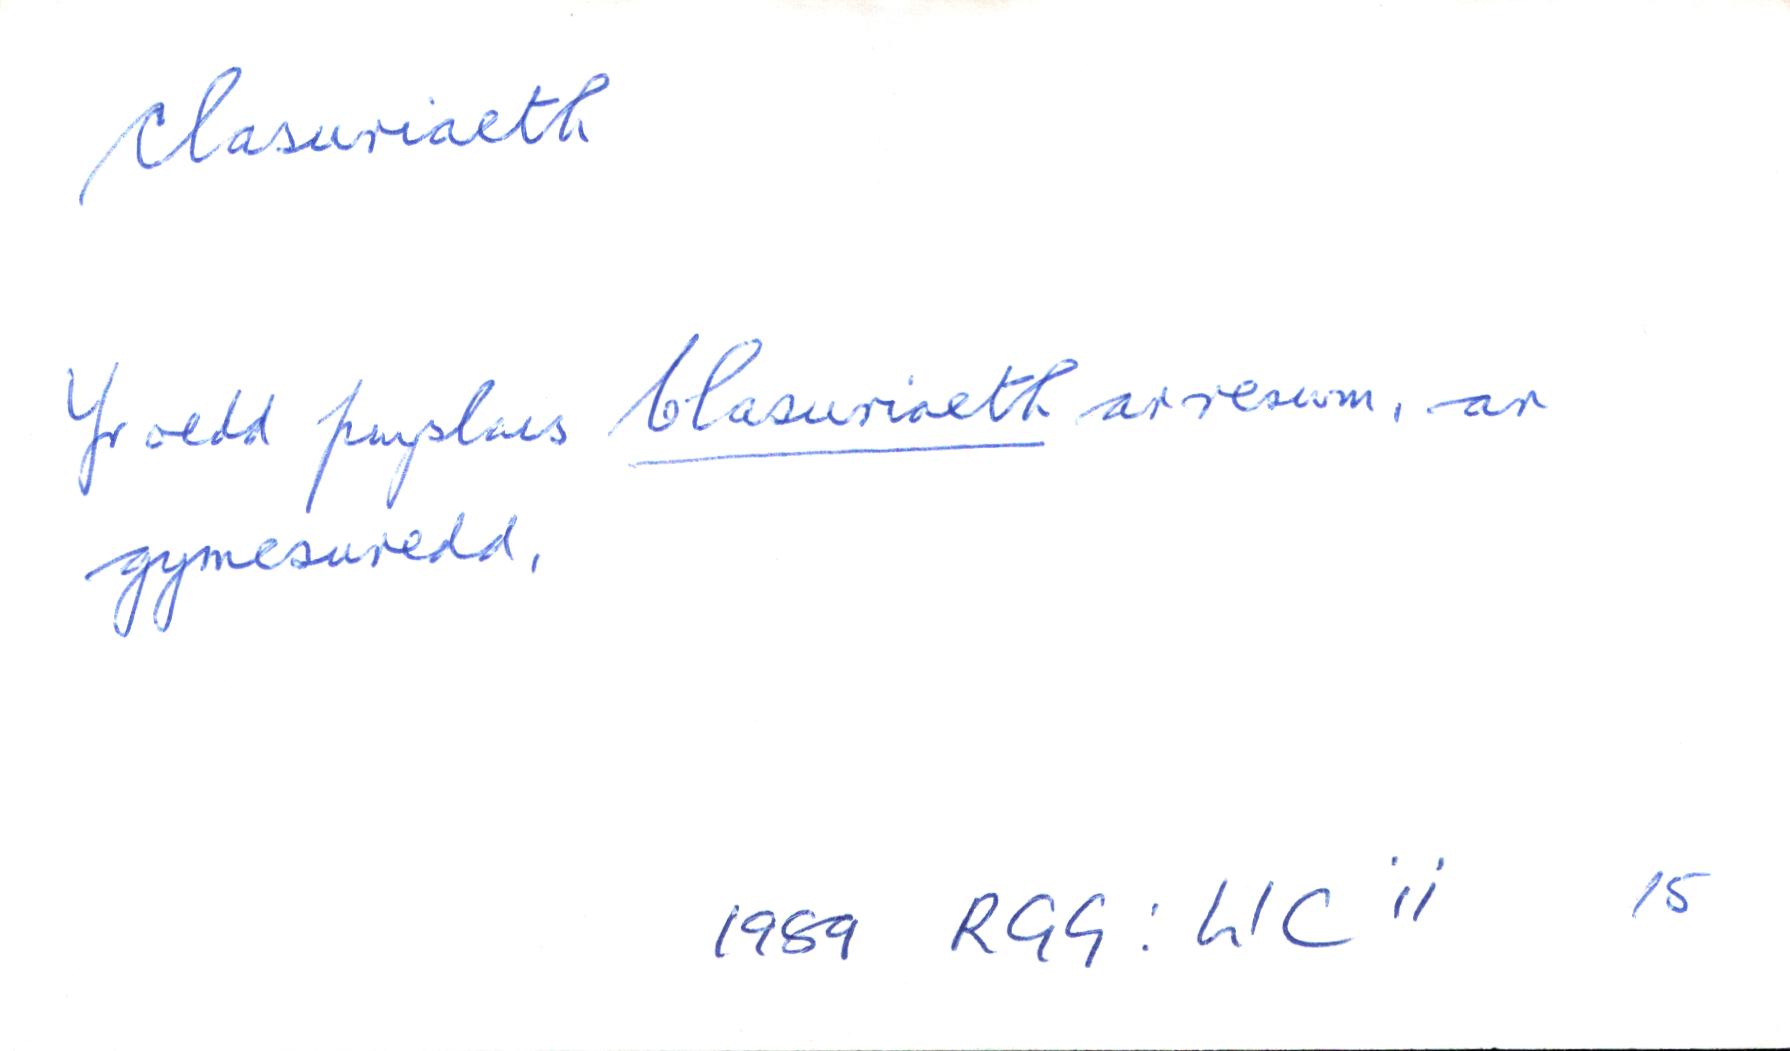 clasuriaeth
Yr oedd pwyslais Clasuriaeth ar reswm, ar
gymesuredd,
1989 RGG: LlC ii 15